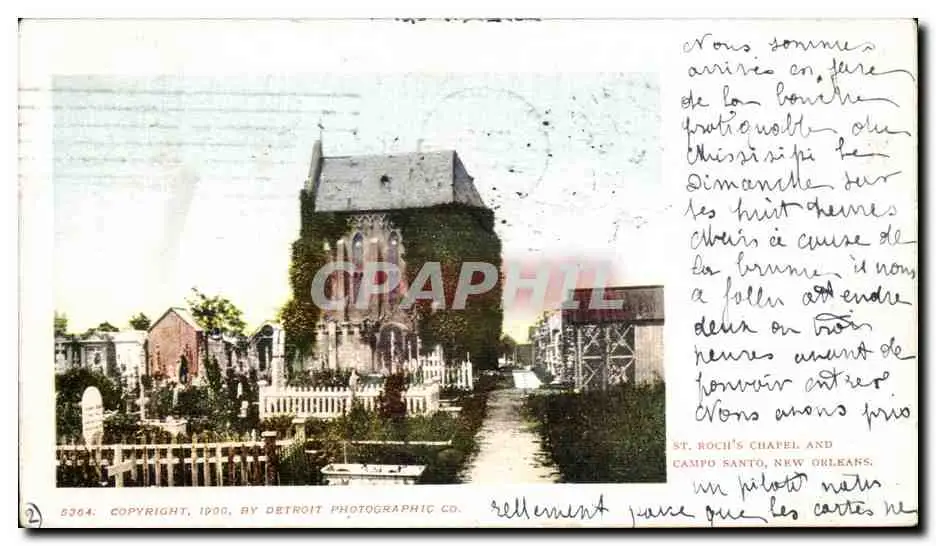 Nous sommes
arrivés en face
de la bouche
pratiquable du
Mississipi le
Dimanche sur
les huit heures
Mais à cause de
la brume il nous
a fallu attendre
deux ou trois
heures avant de
pouvoir entrer
Nous avons pris
CPAPHIL
CPAPHIL
ST. ROCH'S CHAPEL AND
CAMPO SANTO, NEW ORLEANS.
un pilote natu
rellement parce que les cartes ne
5364. COPYRIGHT, 1900, BY DETROIT PHOTOGRAPHIC CO.
2